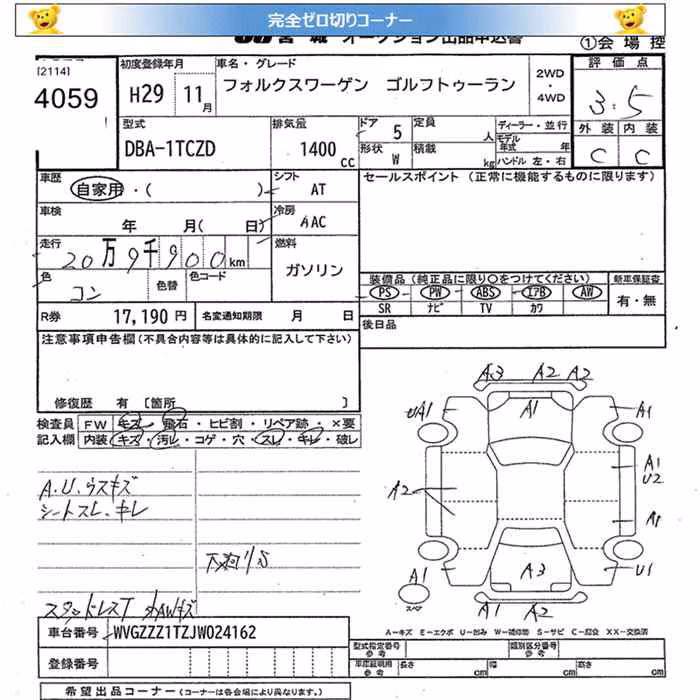 完全ゼロ切りコーナー
オークション出品申込書
①会場控
[2114]
4059
初度登録年月
H29 11月
車名・グレード
フォルクスワーゲン ゴルフトゥーラン
2WD
・
4WD
評価点
3.5
外装 内装
C C
型式
DBA-1TCZD
排気量
1400
cc
ドア 5
形状 W
定員 人
積載 kg
ディーラー・並行
モデル年式 年
ハンドル 左・右
車歴
自家用・( )
シフト
AT
セールスポイント (正常に機能するものに限ります)
車検
年 月( 日)
冷房
AAC
走行
20万9千900km
燃料
ガソリン
色
コン
色替
色コード
装備品 (純正品に限り○をつけてください)
PS PW ABS エアB AW
SR ナビ TV カワ
新車保証書
有・無
R券 17,190円
名変通知期限 月 日
後日品
注意事項申告欄(不具合内容等は具体的に記入して下さい)
修復歴 有 [箇所 ]
検査員 FW キズ・飛石・ヒビ割・リペア跡・×要
記入欄 内装 キズ・汚レ・コゲ・穴・スレ・キレ・破レ
A.U.ウスキズ
シートスレ、キレ
下廻りS
スタッドレスT AWキズ
A3 A2 A2
UA1 A1 A1
A1
U2
A2
A1
A1 A3 U1
スペア
A1 A2
A—キズ E—エクボ U—凹み W—補修跡 S—サビ C—腐食 XX—交換済
車台番号 WVGZZZ1TZJW024162
登録番号
型式指定番号 参考
類別区分番号 参考
車庫証明用 参考
長さ cm 幅 cm 高さ cm
希望出品コーナー (コーナーは各会場により異なります。)